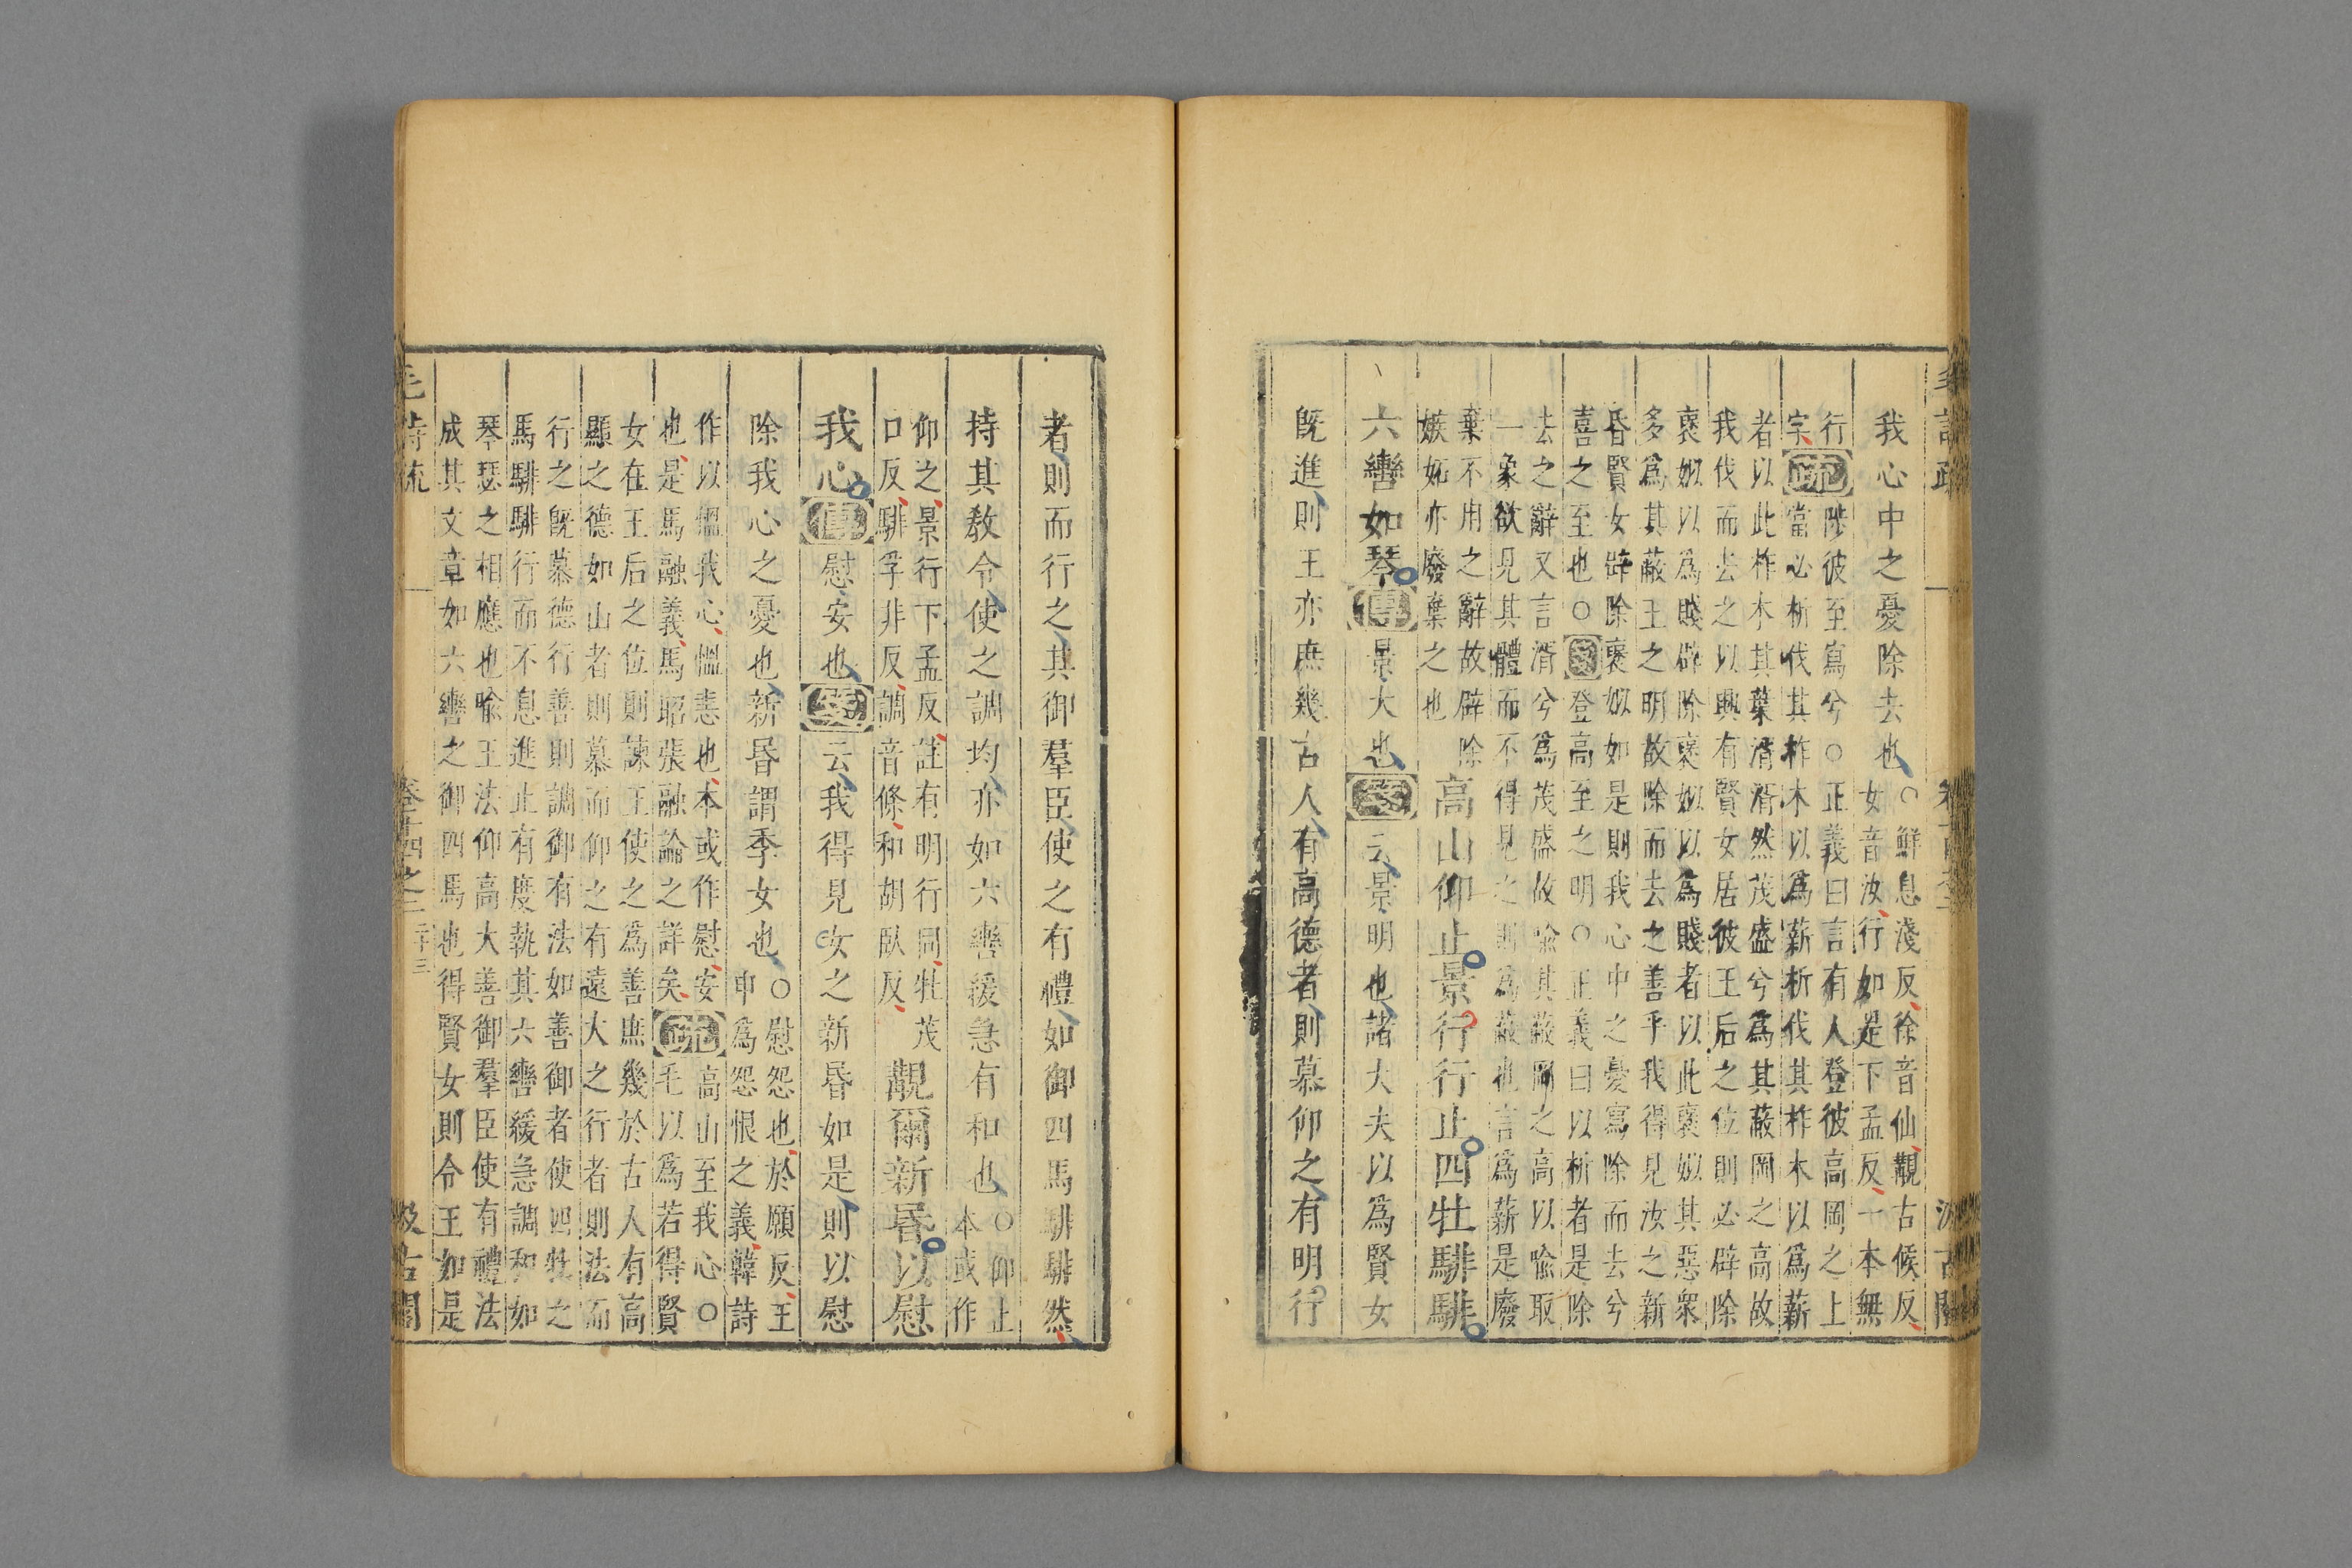 我心中之憂除去也○鮮息淺反徐音仙覯古候反
女音汝行如是下孟反一本無
行疏陟彼至寫兮○正義曰言有人登彼高岡之上
宗當必析伐其柞木以爲薪析伐其柞木以爲薪
者以此柞木其葉湑湑然茂盛兮爲其蔽岡之高故
我伐而去之以興有賢女居彼王后之位則必辟除
襃姒以爲賤辟除襃姒以爲賤者以此襃姒其惡衆
多爲其蔽王之明故除而去之善乎我得見汝之新
昏賢女辟除襃姒如是則我心中之憂寫除而去兮
喜之至也○箋登高至之明○正義曰以析者是除
去之辭又言湑兮爲茂盛故喻其蔽岡之高以喻取
一象欲見其體而不得見之爲蔽也言爲薪是廢
棄不用之辭故辟除
嫉妬亦廢棄之也
高山仰止景行行止四牡騑騑
六轡如琴傳景大也箋云景明也諸大夫以爲賢女
既進則王亦庶幾古人有高德者則慕仰之有明行
者則而行之其御羣臣使之有禮如御四馬騑騑然
持其敎令使之調均亦如六轡緩急有和也○仰止
本或作
仰之景行下孟反註有明行同牡茂
口反騑孚非反調音條和胡臥反
覯爾新昏以慰
我心傳慰安也箋云我得見女之新昏如是則以慰
除我心之憂也新昏謂季女也○慰怨也於願反王
申爲怨恨之義韓詩
作以慍我心慍恚也本或作慰安
也是馬融義馬昭張融論之詳矣疏高山至我心○
毛以爲若得賢
女在王后之位則諫王使之爲善庶幾於古人有高
顯之德如山者則慕而仰之有遠大之行者則法而
行之旣慕德行善則調御有法如善御者使四牡之
馬騑騑行而不息進止有度執其六轡緩急調和如
琴瑟之相應也喻王法仰高大善御羣臣使有禮法
成其文章如六轡之御四馬也得賢女則令王如是
毛詩疏 卷十四之二 二十三 汲古閣